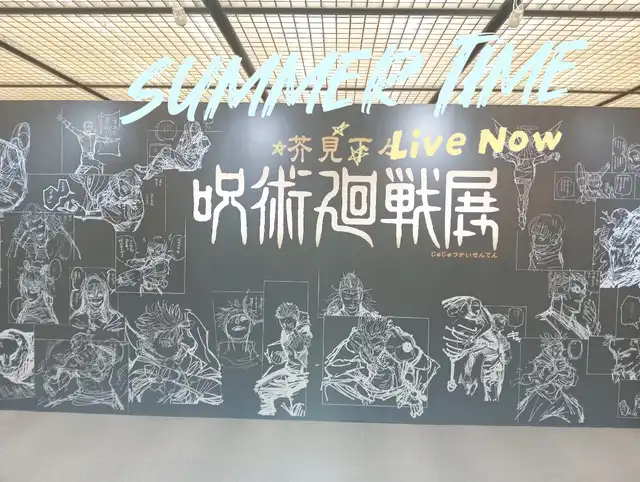 SUMMER TIME
芥見下々
Live Now
呪術廻戦展
じゅじゅつかいせんてん